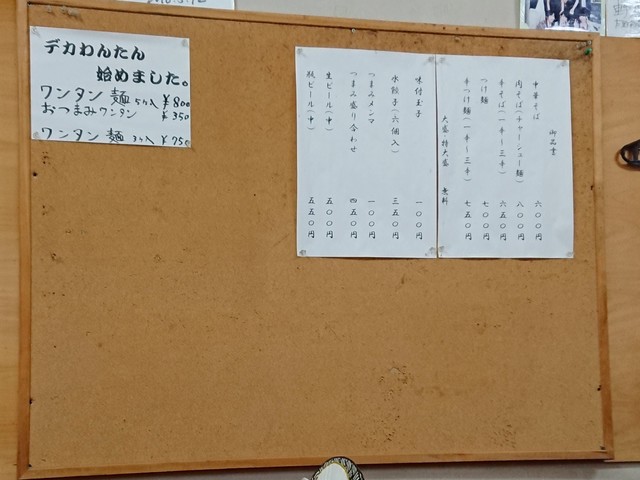 デカわんたん
始めました。
ワンタン 麺 5ヶ入 ¥800
おつまみワンタン ¥350
ワンタン 麺 3ヶ入 ¥750
御品書
中華そば 六〇〇円
肉そば(チャーシュー麺) 八〇〇円
辛そば(一辛〜三辛) 六五〇円
つけ麺 七〇〇円
辛つけ麺(一辛〜三辛) 七五〇円
大盛・特大盛 無料
味付玉子 一〇〇円
水餃子(六個入) 三五〇円
つまみメンマ 一〇〇円
つまみ盛り合わせ 四五〇円
生ビール(中) 五〇〇円
瓶ビール(中) 五五〇円